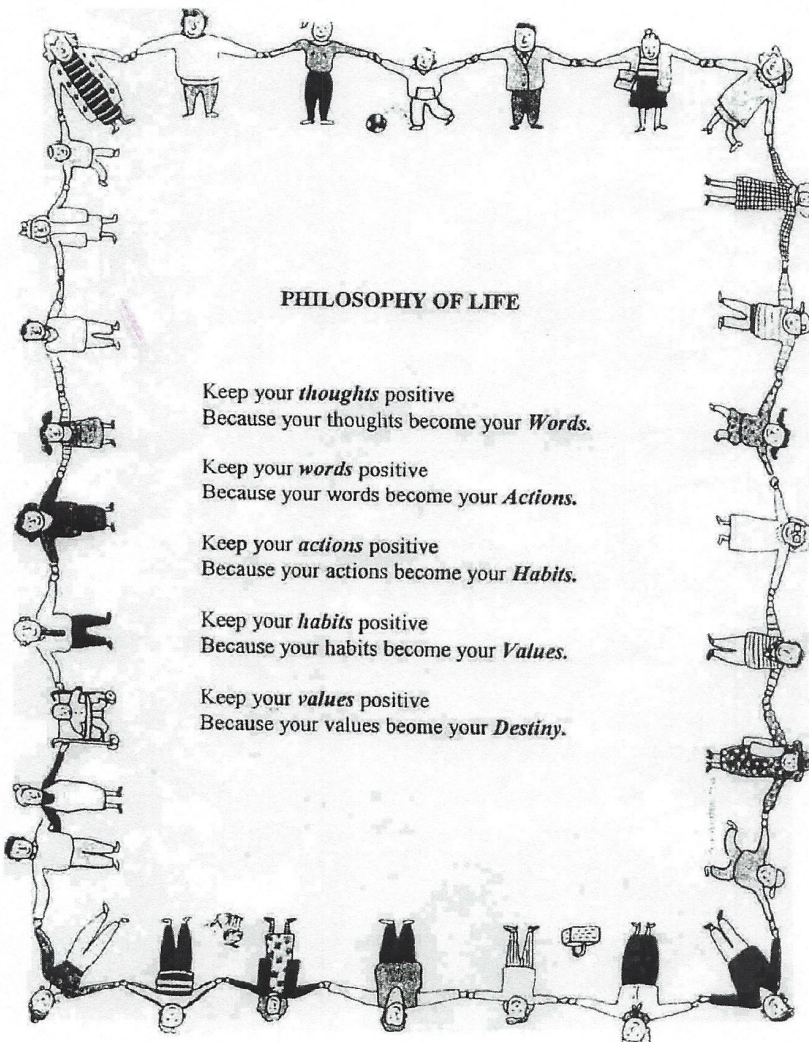 PHILOSOPHY OF LIFE
Keep your thoughts positive
Because your thoughts become your Words.
Keep your words positive
Because your words become your Actions.
Keep your actions positive
Because your actions become your Habits.
Keep your habits positive
Because your habits become your Values.
Keep your values positive
Because your values beome your Destiny.